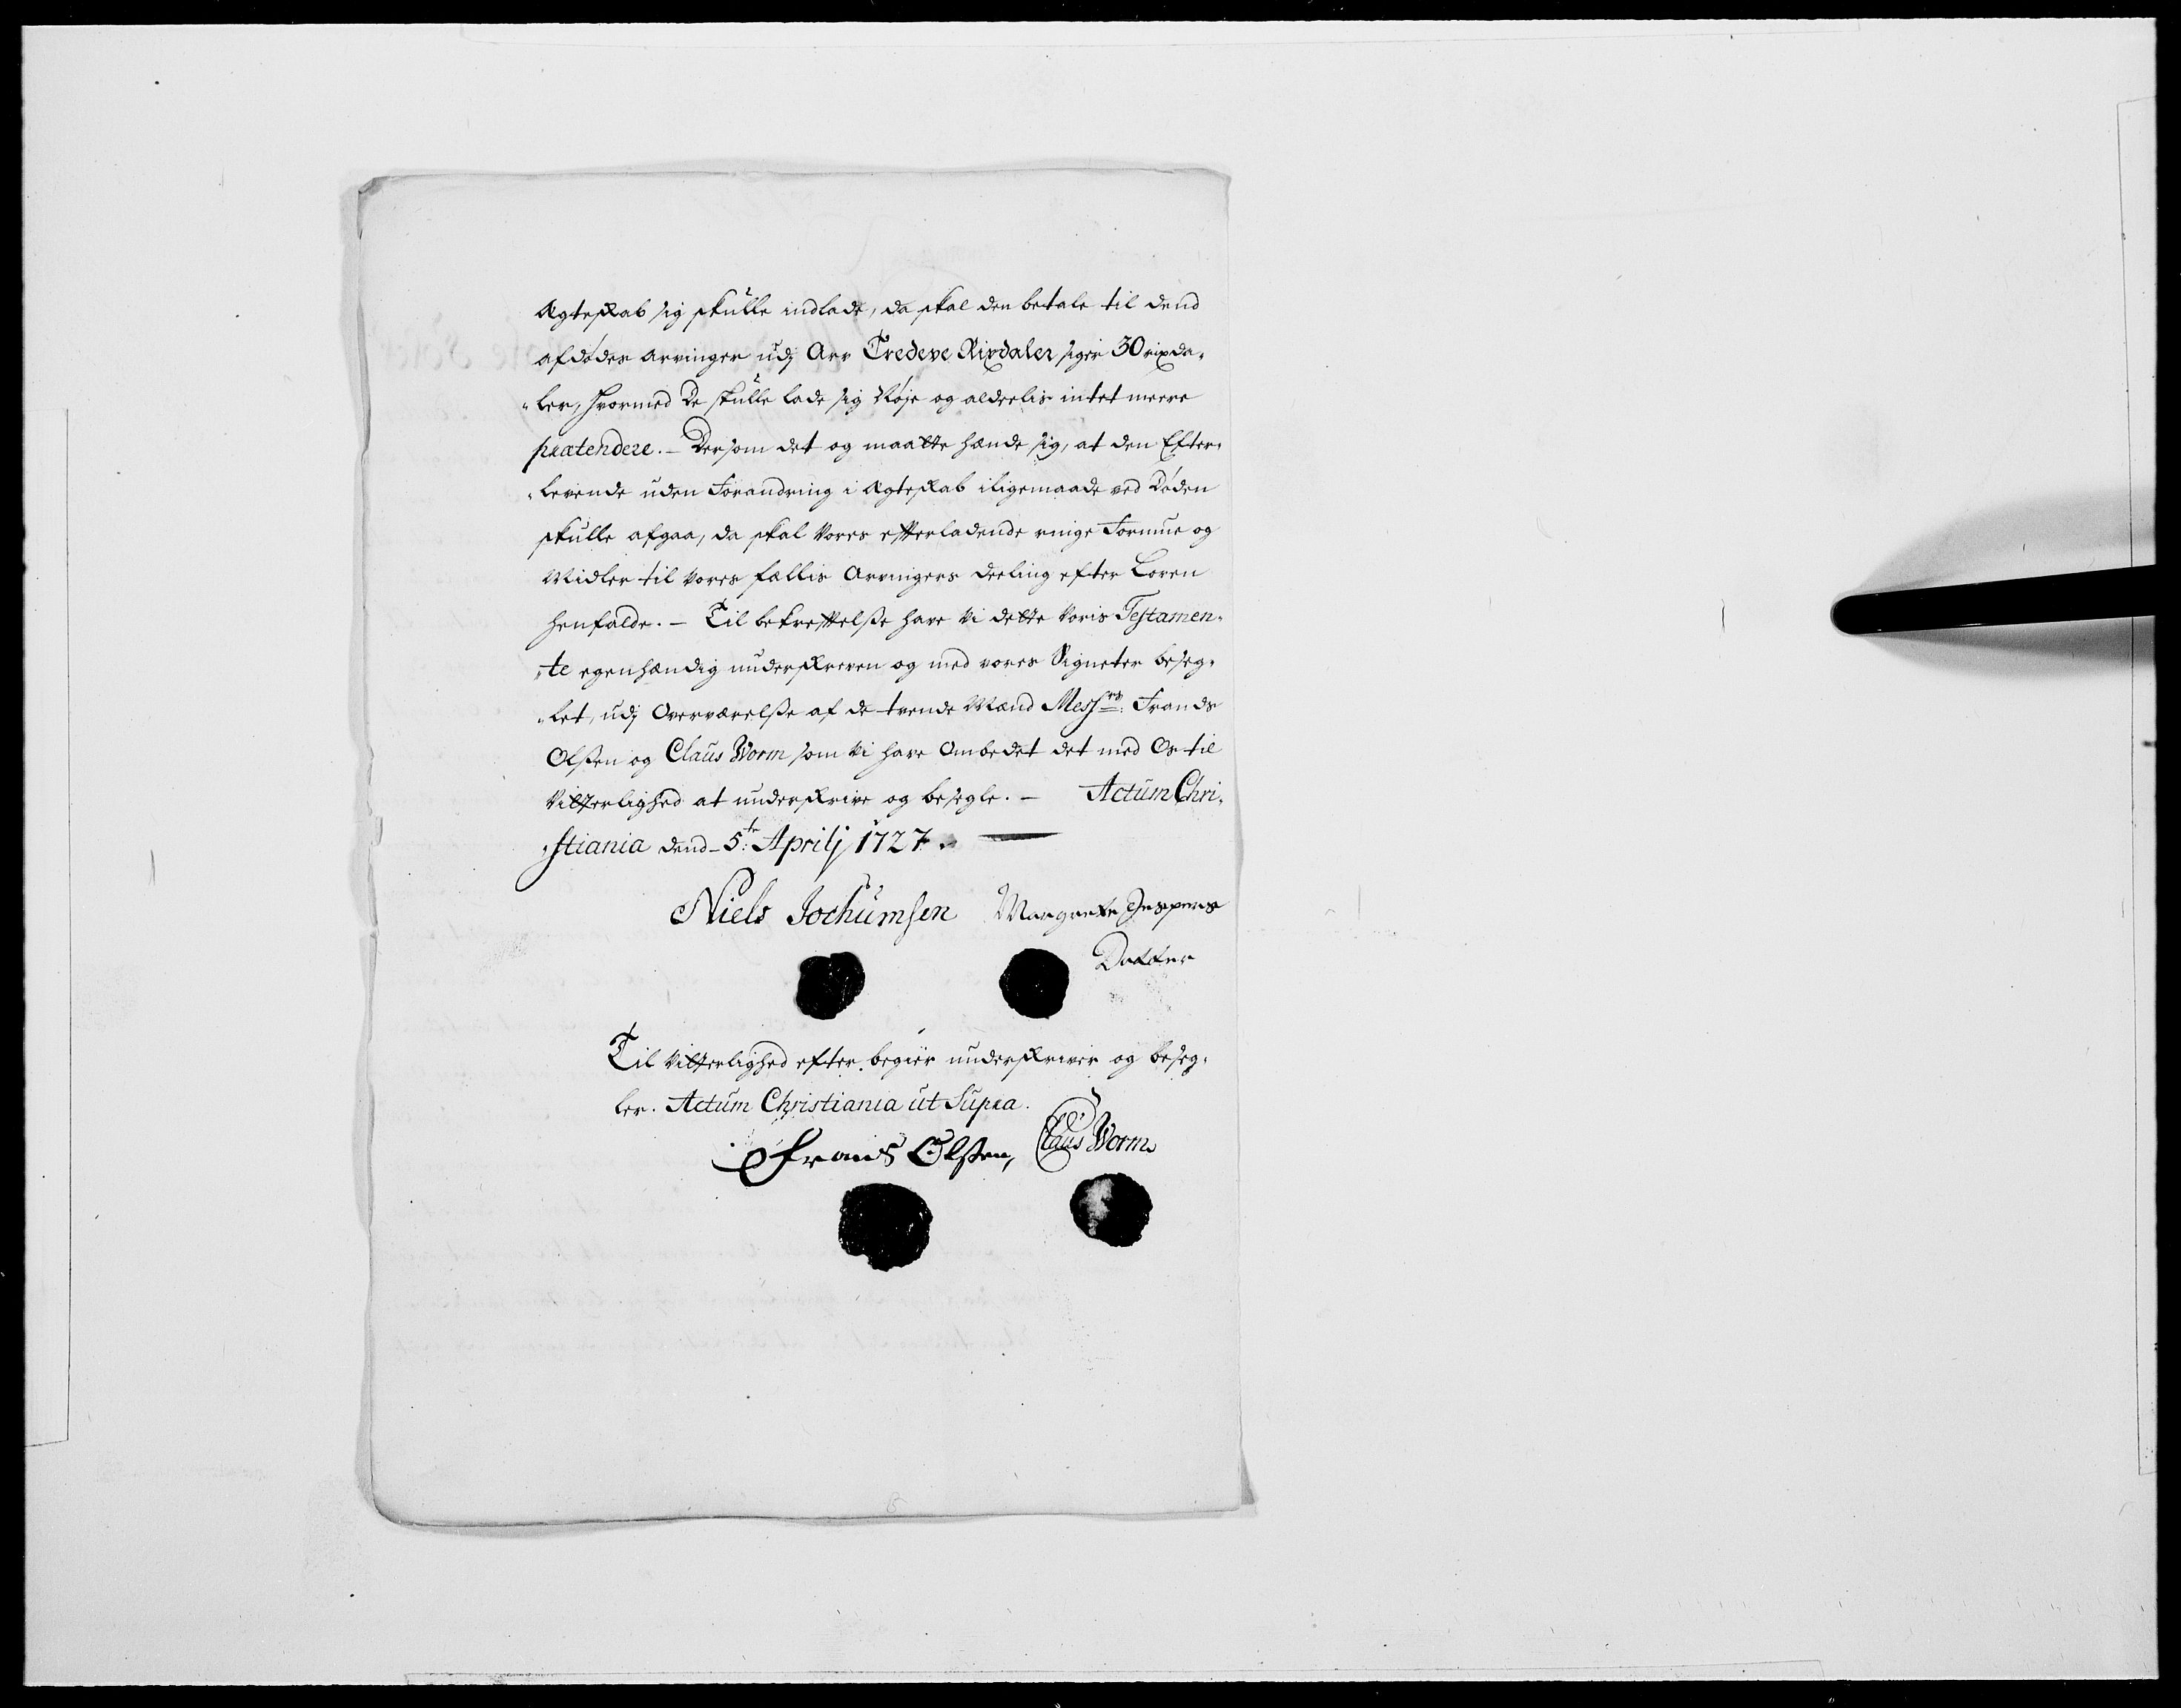 Ægteskab sig skulle indlade, da skal den betale til dend
afdødes arvinger udj Arv Tredeve Rixdaler siger 30 rixda„
„ler, hvormed De skulle lade sig Nøje og alderlis intet meere
prætendere. – Dersom det og maatte hænde sig, at den Efter„
„levende uden Forandring i Ægteskab iligemaade ved Døden
skulle afgaa, da skal Vores efterladende ringe Formue og
Midler til Vores fællis Arvingers deeling efter Loven
henfalde. – Til bekreftelsse have Vi dette Voris Testamen„
„te egenhændig underskreven og med vores Signeter beseg„
„let, udj Overværelsse af de tvende Mænd Messrs: Frands
Olssen og Claus Worm som Vi have Ombedet det med Os til
Vitterlighed at underskrive og besegle. – Actum Chri„
„stiania dend 5te Aprilj 1727. –
Niels Jochumsen Margrete Jespers
Datter
Til Vitterlighed efter begiær underskriver og beseg„
ler. Actum Christiania ut Supra.
Frands Olssen, Claus Worm